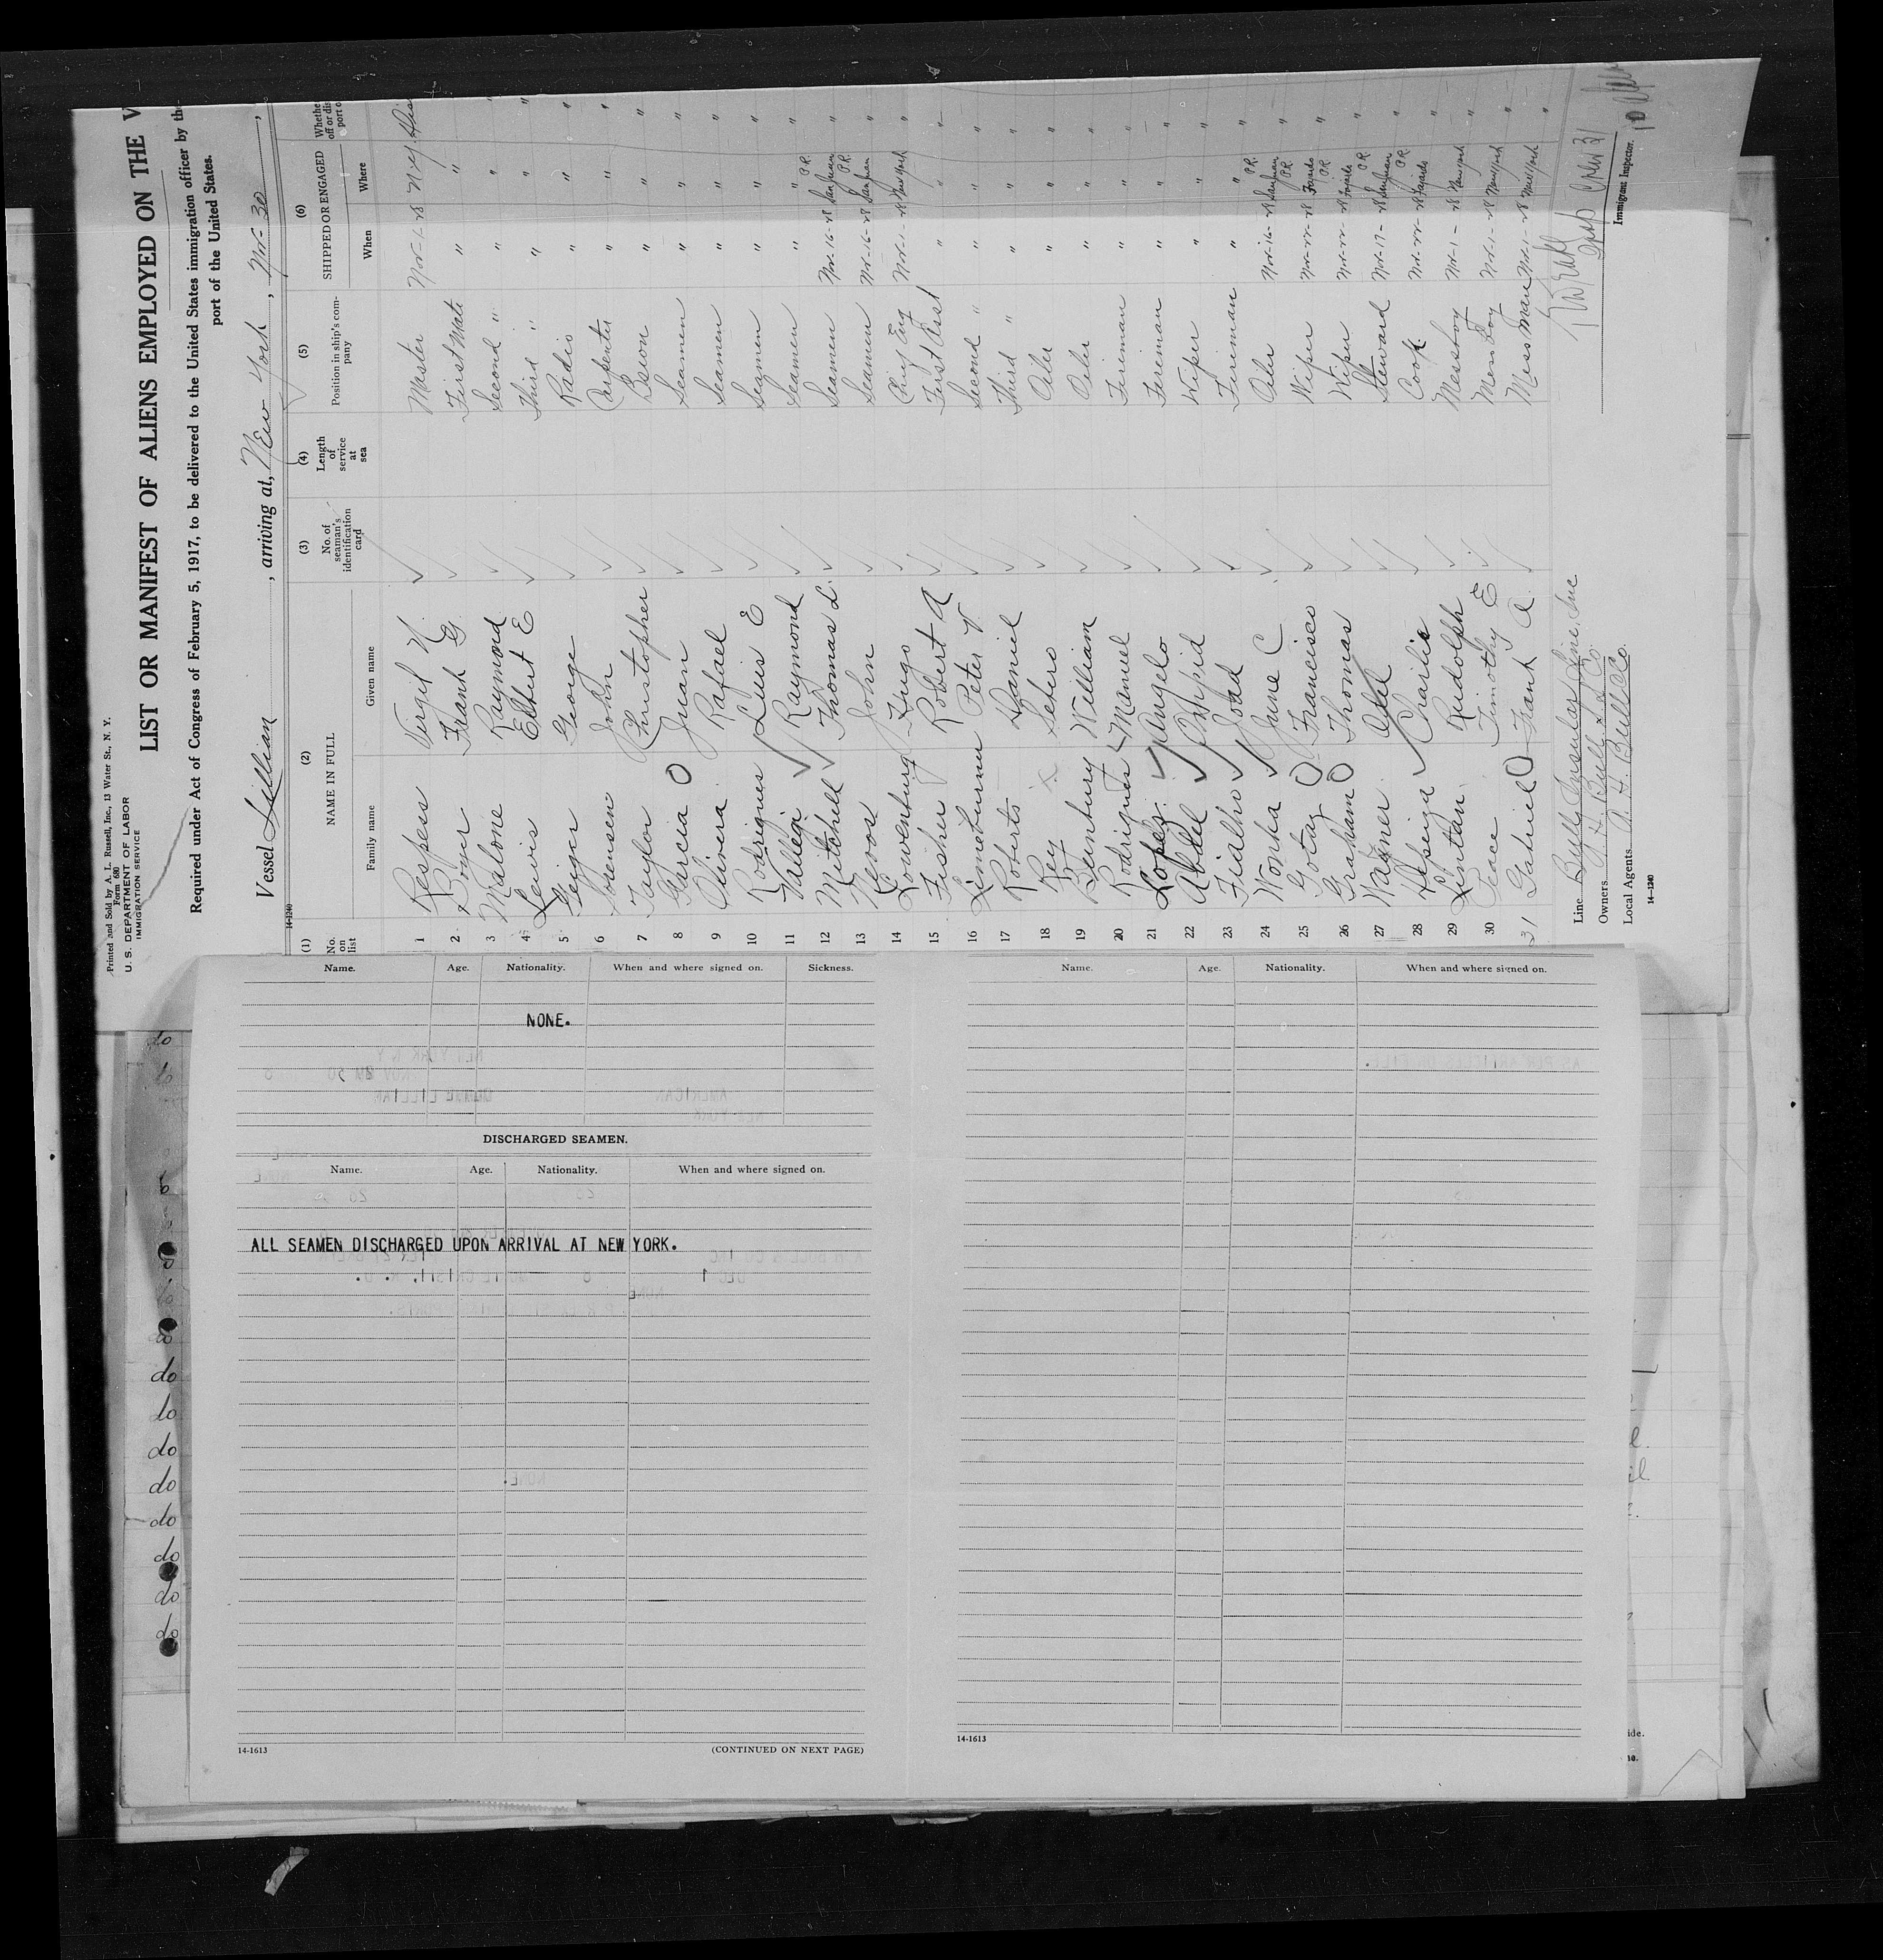 Printed and Sold by A. L. Russell, Inc., 13 Water St., N. Y.
Form 680
U. S. DEPARTMENT OF LABOR
IMMIGRATION SERVICE
LIST OR MANIFEST OF ALIENS EMPLOYED ON THE V
Required under Act of Congress of February 5, 1917, to be delivered to the United States immigration officer by the
port of the United States.
Vessel Lillian, arriving at, New York, Nov- 30
14-1240
(1) No. on list (2) NAME IN FULL Family name Given name (3) No. of seaman's identification card (4) Length of service at sea (5) Position in ship's company (6) SHIPPED OR ENGAGED When Where
1 Respess Virgil Master Nov-1-28 N.Y.
2 Frank G First Mate " "
3 Malone Raymond Second " " "
4 Lewis Elbert E Third " " "
5 Geiger George Radio " "
6 Sorensen John Carpenter " "
7 Taylor Christopher Boson " "
8 Garcia Juan Seamen " "
9 Olivera Rafael Seamen " "
10 Rodrigues Luis E Seamen " "
11 Valleja Raymond Seamen " "
12 Mitchell Thomas L. Seamen Nov-16-28 San Juan P.R.
13 John Seamen Nov-16-28 San Juan P.R.
14 Lowenburg Hugo Chief Eng Nov-1-28 New York
15 Fisher Robert A First Asst " "
16 Limeburner Peter V. Second " " "
17 Roberts Daniel Third " " "
18 Rey Severo Oiler " "
19 Bembury William Oiler " "
20 Rodrigues Manuel Fireman " "
21 Lopes Angelo Fireman " "
22 Abdel Wiper " "
23 Fialho Joad Fireman " "
24 Wonka June C. Oiler Nov-16-28 San Juan P.R.
25 Gotay Francisco Wiper Fajardo P.R.
26 Graham Thomas Wiper Fajardo P.R.
27 Wagner Steward Nov-17-28 San Juan P.R.
28 Charlie Cook Fajardo P.R.
29 Lintan Rudolph Messboy Nov-1-28 New York
30 Peace Timothy E Mess Boy Nov-1-28 New York
31 Gabriel Frank A. Mess Man Nov-1-28 New York
Line Bulls Insular Line, Inc
Owners A. H. Bull & Co.
Local Agents A. H. Bull & Co.
Immigrant Inspector.
14-1240
Name. Age. Nationality. When and where signed on. Sickness.
NONE.
DISCHARGED SEAMEN.
Name. Age. Nationality. When and where signed on.
ALL SEAMEN DISCHARGED UPON ARRIVAL AT NEW YORK.
14-1613
(CONTINUED ON NEXT PAGE)
Name. Age. Nationality. When and where signed on.
14-1613
do
do
do
do
do
do
do
do
do